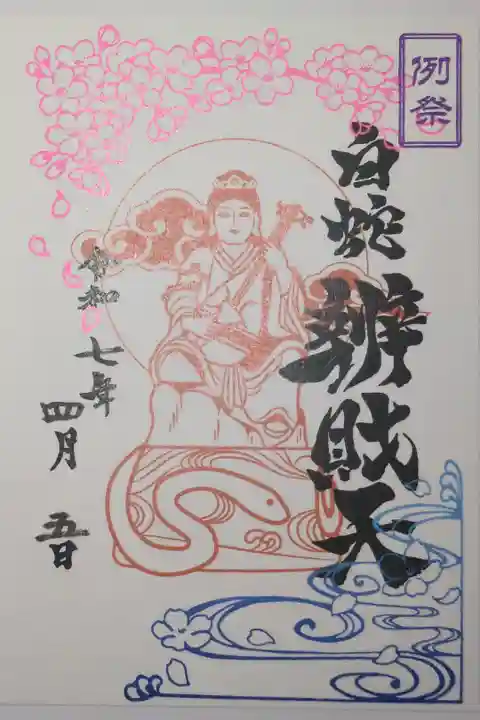 例祭
白蛇辨財天
令和七年
四月五日